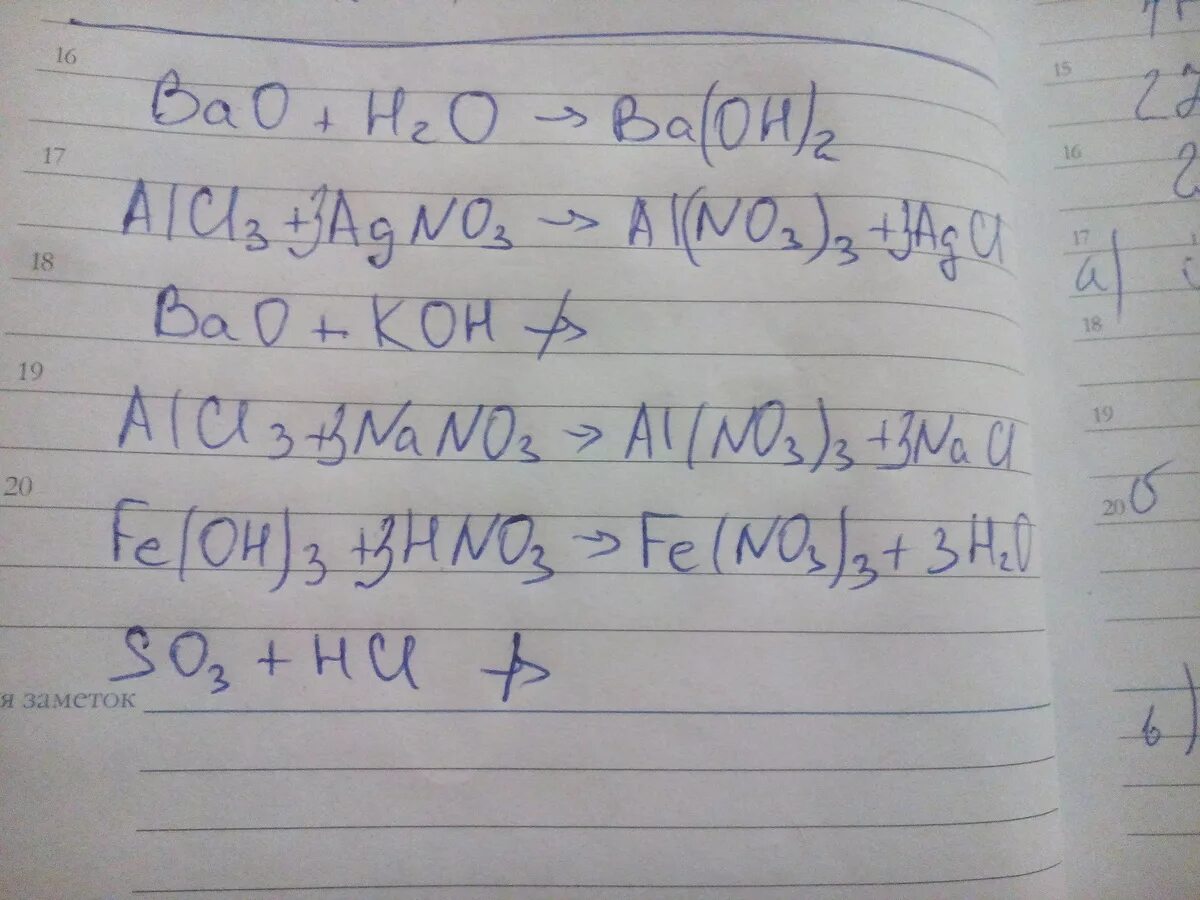 16
BaO + H2O → Ba(OH)2
17
AlCl3 + 3AgNO3 → Al(NO3)3 + 3AgCl
18
BaO + KOH ↛
19
AlCl3 + 3NaNO3 → Al(NO3)3 + 3NaCl
20
Fe(OH)3 + 3HNO3 → Fe(NO3)3 + 3H2O
SO3 + HCl ↛
я заметок
15
16
2
17
а)
18
19
20
б
в)